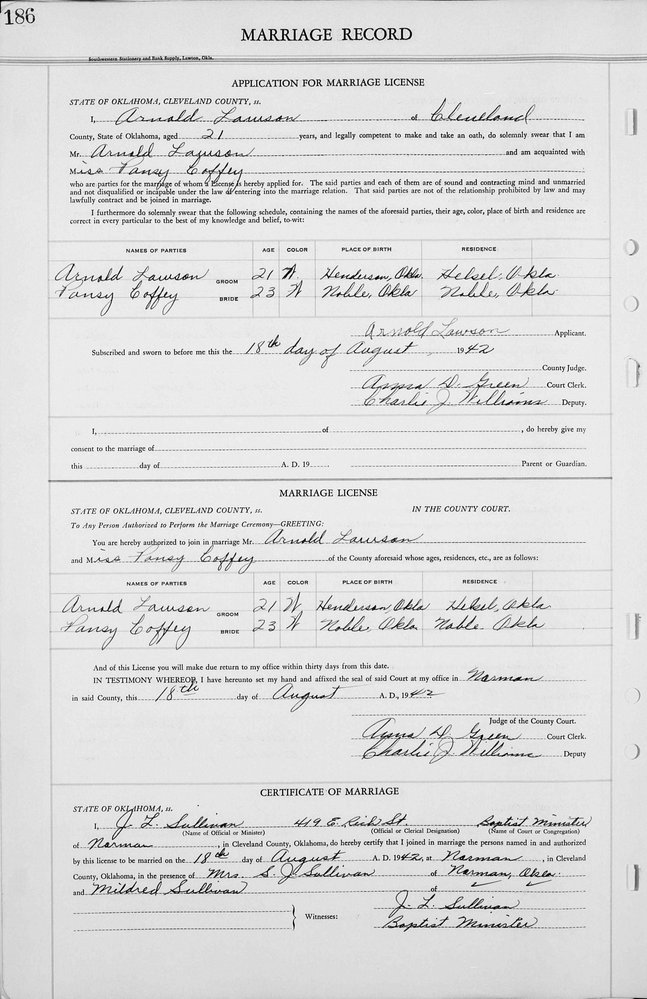 186
MARRIAGE RECORD
Southwestern Stationery and Bank Supply, Lawton, Okla.
APPLICATION FOR MARRIAGE LICENSE
STATE OF OKLAHOMA, CLEVELAND COUNTY, ss.
I, Arnold Lawson of Cleveland
County, State of Oklahoma, aged 21 years, and legally competent to make and take an oath, do solemnly swear that I am
Mr. Arnold Lawson and am acquainted with
Miss Pansy Coffey
who are parties for the marriage of whom a License is hereby applied for. The said parties and each of them are of sound and contracting mind and unmarried
and not disqualified or incapable under the law of entering into the marriage relation. That said parties are not of the relationship prohibited by law and may
lawfully contract and be joined in marriage.
I furthermore do solemnly swear that the following schedule, containing the names of the aforesaid parties, their age, color, place of birth and residence are
correct in every particular to the best of my knowledge and belief, to-wit:
NAMES OF PARTIES AGE COLOR PLACE OF BIRTH RESIDENCE
Arnold Lawson GROOM 21 W Henderson, Okla. Helsel, Okla
Pansy Coffey BRIDE 23 W Noble, Okla Noble, Okla
Arnold Lawson Applicant.
Subscribed and sworn to before me this the 18th day of August, 1942
County Judge.
D. Green Court Clerk.
Charlie J. Williams Deputy.
I, of , do hereby give my
consent to the marriage of
this day of A. D. 19 Parent or Guardian.
MARRIAGE LICENSE
STATE OF OKLAHOMA, CLEVELAND COUNTY, ss. IN THE COUNTY COURT.
To Any Person Authorized to Perform the Marriage Ceremony—GREETING:
You are hereby authorized to join in marriage Mr. Arnold Lawson
and Miss Pansy Coffey of the County aforesaid whose ages, residences, etc., are as follows:
NAMES OF PARTIES AGE COLOR PLACE OF BIRTH RESIDENCE
Arnold Lawson GROOM 21 W Henderson, Okla Helsel, Okla
Pansy Coffey BRIDE 23 W Noble, Okla Noble, Okla
And of this License you will make due return to my office within thirty days from this date.
IN TESTIMONY WHEREOF, I have hereunto set my hand and affixed the seal of said Court at my office in Norman
in said County, this 18th day of August A. D., 1942
Judge of the County Court.
D. Green Court Clerk.
Charlie J. Williams Deputy
CERTIFICATE OF MARRIAGE
STATE OF OKLAHOMA, ss.
I, J. L. Sullivan 419 E. Rich St. Baptist Minister
(Name of Official or Minister) (Official or Clerical Designation) (Name of Court or Congregation)
of Norman, in Cleveland County, Oklahoma, do hereby certify that I joined in marriage the persons named in and authorized
by this license to be married on the 18th day of August A. D. 1942, at Norman, in Cleveland
County, Oklahoma, in the presence of Mrs. S. J. Sullivan of Norman, Okla.
and Mildred Sullivan of
J. L. Sullivan
Witnesses: Baptist Minister